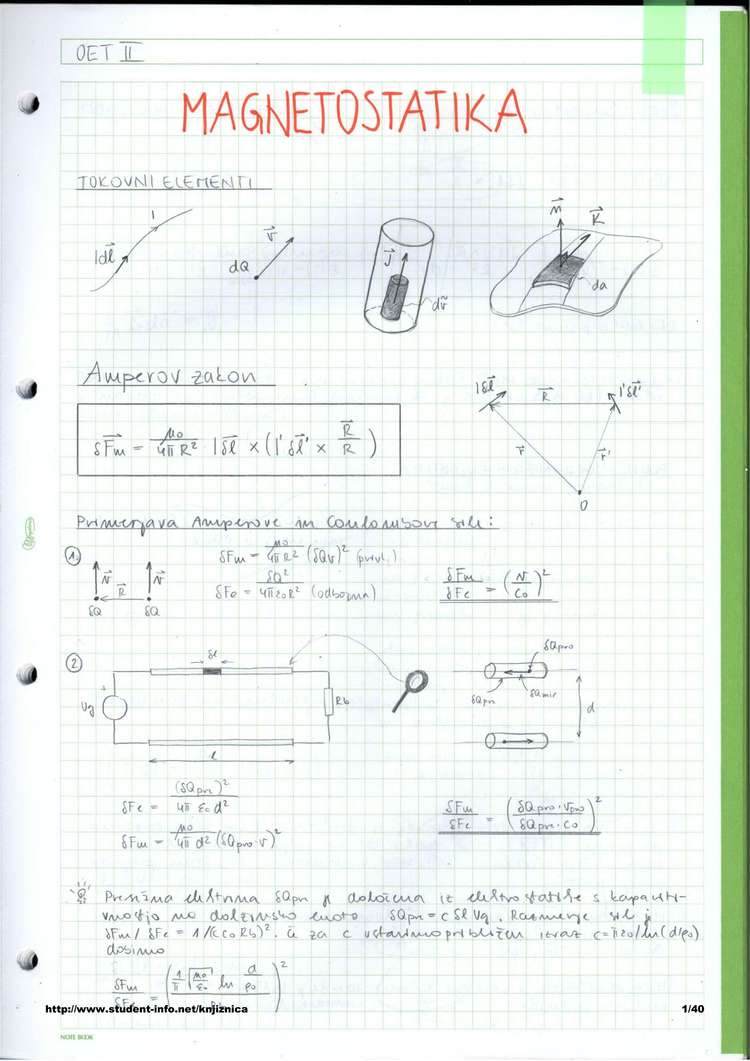 OET II
MAGNETOSTATIKA
TOKOVNI ELEMENTI
I
Idl⃗
v⃗
dQ
J⃗
dṽ
n⃗
K⃗
da
Amperov zakon
δF⃗m = μ0/4πR² · Iδl⃗ × (I'δl⃗' × R⃗/R)
Iδl⃗
R⃗
I'δl⃗'
r⃗
r⃗'
O
Primerjava Amperove in Coulombove sile:
1.
v⃗
R⃗
v⃗
δQ
δQ
δFm = μ0/4πR² (δQv)² (privl.)
δFe = δQ²/4πε0R² (odbojna)
δFm/δFe = (v/c0)²
2
δl
Ug
Rb
l
δQpro
δQpn
δQmir
d
δFe = (δQpn)²/4πε0d²
δFm = μ0/4πd² (δQpro·v)²
δFm/δFe = (δQpro·vpro/δQpn·c0)²
Presežna elektrina δQpn je določena iz elektrostatike s kapaciti-
vnostjo na dolžinsko enoto δQpn = cδlUg. Razmerje sil je
δFm/δFe = 1/(c c0 Rb)². Če za c vstavimo približen izraz c=πε0/ln(d/ρ0)
dobimo
δFm/δFe = (1/π √μ0/ε0 ln d/ρ0)²
http://www.student-info.net/knjiznica
1/40
NOTE BOOK